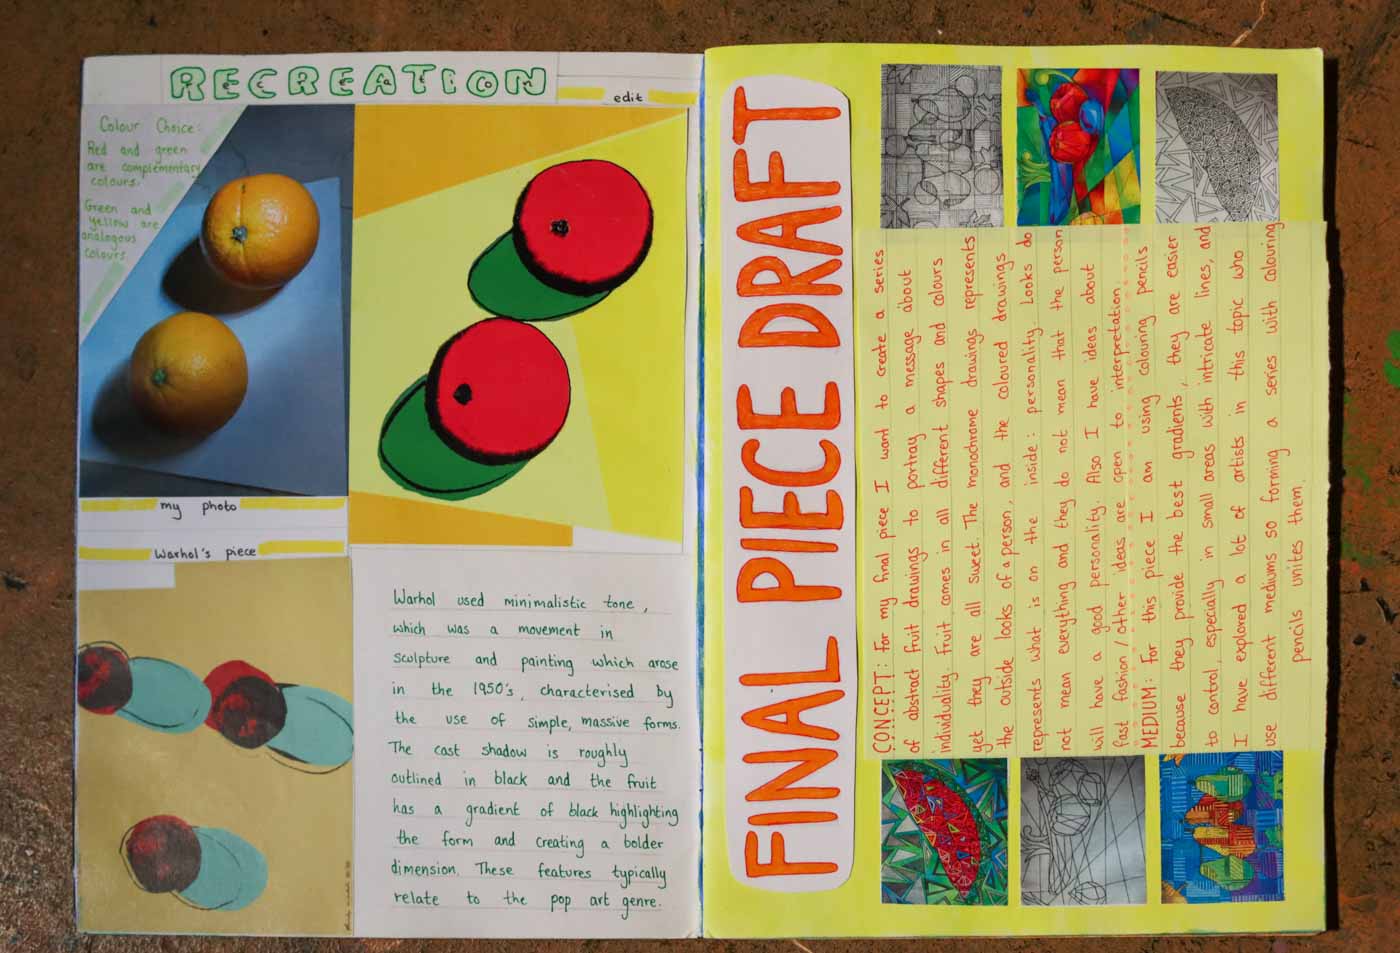 RECREATION
edit
Colour Choice:
Red and green
are complementary
colours.
Green and
yellow are
analogous
colours.
my photo
Warhol's piece
Warhol used minimalistic tone,
which was a movement in
sculpture and painting which arose
in the 1950's, characterised by
the use of simple, massive forms.
The cast shadow is roughly
outlined in black and the fruit
has a gradient of black highlighting
the form and creating a bolder
dimension. These features typically
relate to the pop art genre.
FINAL PIECE DRAFT
CONCEPT: For my final piece I want to create a series
of abstract fruit drawings to portray a message about
individuality. Fruit comes in all different shapes and colours
yet they are all sweet. The monochrome drawings represents
the outside looks of a person, and the coloured drawings
represents what is on the inside: personality. Looks do
not mean everything and they do not mean that the person
will have a good personality. Also I have ideas about
fast fashion / other ideas are open to interpretation.
MEDIUM: For this piece I am using colouring pencils
because they provide the best gradients, they are easier
to control, especially in small areas with intricate lines, and
I have explored a lot of artists in this topic who
use different mediums so forming a series with colouring
pencils unites them.